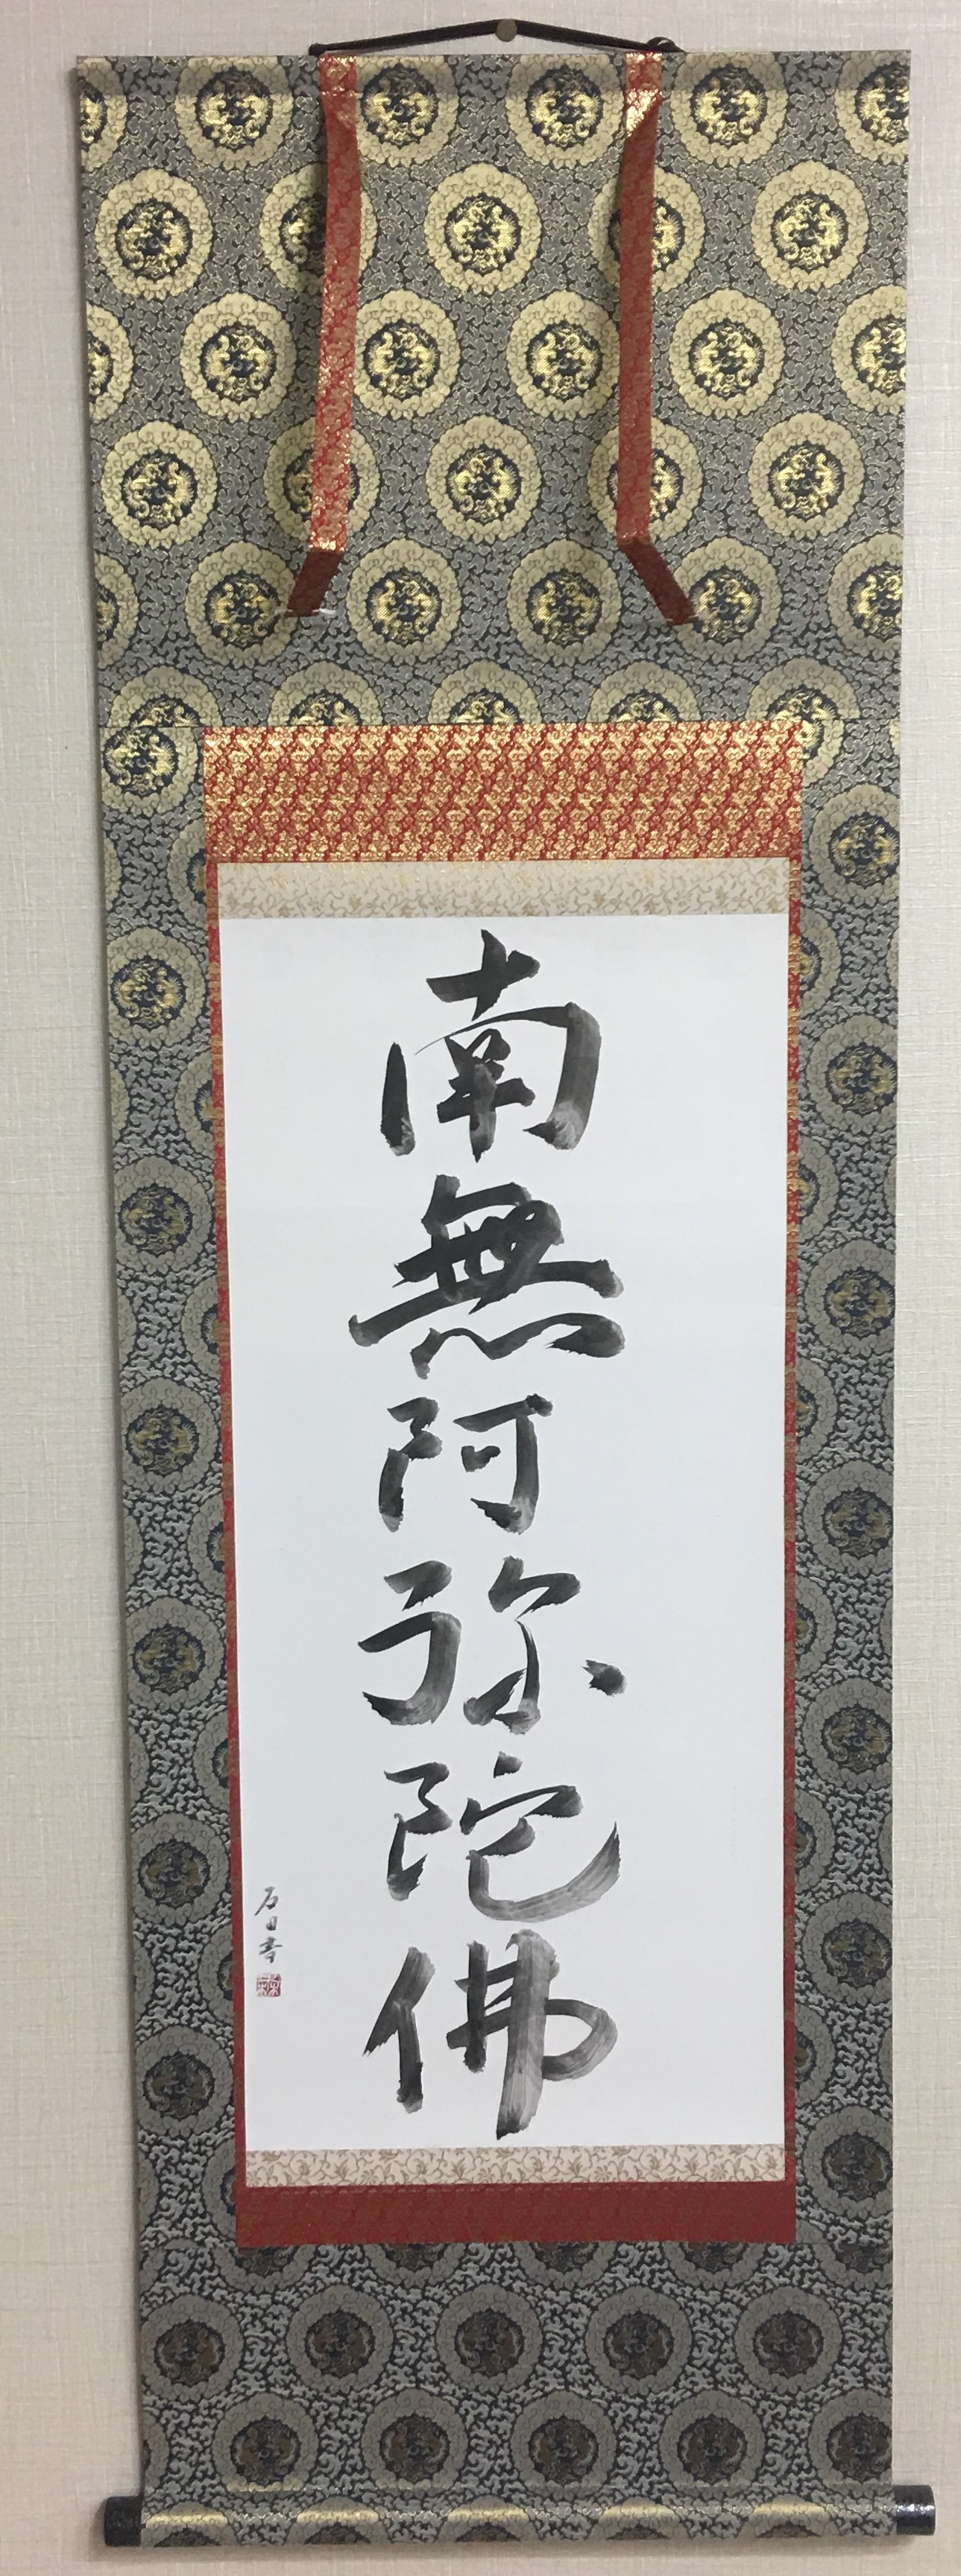 南無阿弥陀佛
石田書